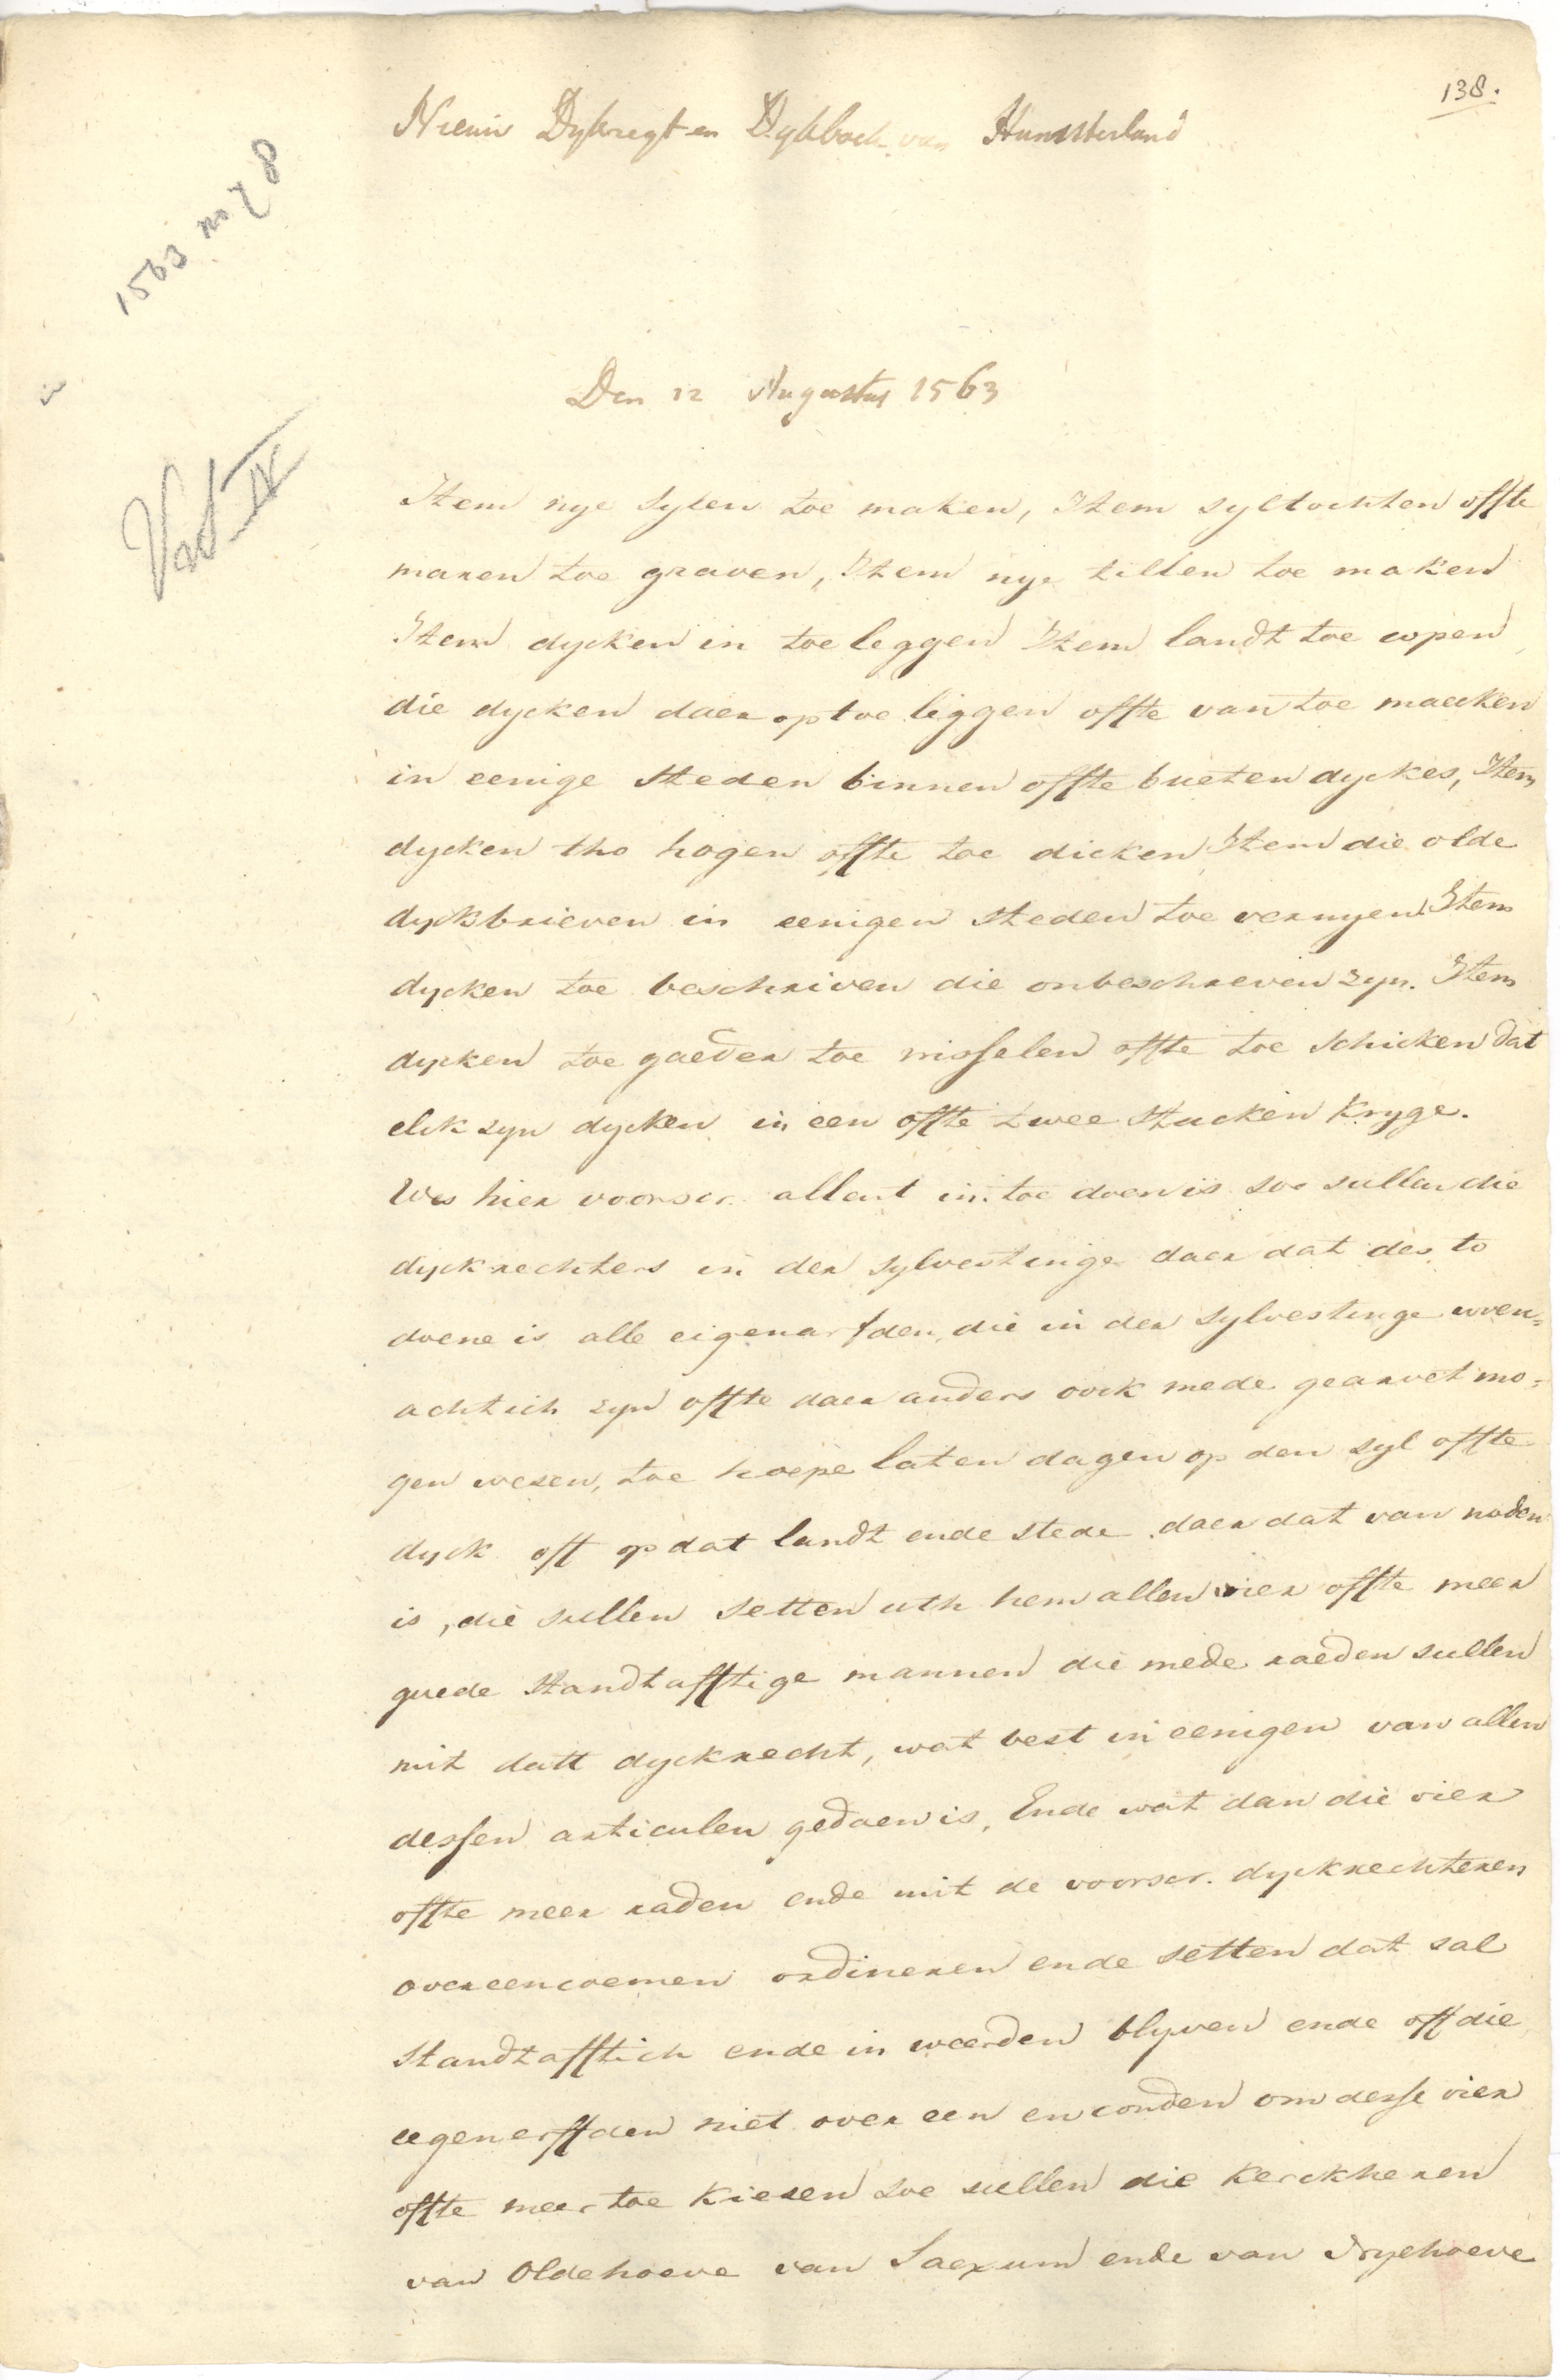 138.
Nieuw Dykregt en Dykboek van Hunsterland
1563 no 78
Den 12 Augustus 1563
Vol IV
Item nye sylen toe maken, Item syltochten offte
maren toe graven, Item nye tillen toe maken
Item dycken in toe leggen Item landt toe copen
die dycken daer op toe liggen offte van toe maecken
in eenige steden binnen offte bueten dyckes, Item
dycken tho hogen offte toe dicken Item die olde
dyckbrieven in eenigen steden toe vernyen Item
dycken toe beschriven die onbeschreven zyn. Item
dycken toe gaeder toe wisselen offte toe schicken dat
elck zyn dycken in een offte twee stucken kryge.
Wes hier voorscr. allent in toe doen is soe sullen die
dyckrechters in der sylvestinge daer dat des to
doene is alle eigenarfden, die in der sylvestinge woen=
achtich zyn offte daer anders oock mede gearvet mo=
gen wesen, toe hoepe laten dagen op den syl offte
dyck oft op dat landt ende stede daer dat van noden
is, die sullen setten uth hem allen vier offte meer
guede standtafftige mannen die mede raeden sullen
mit datt dyckrecht, wat best in eenigen van allen
dessen articulen gedaen is, Ende wat dan die vier
offte meer raden ende mit de voorscr. dyckrechteren
overeencoemen ordineren ende setten dat sal
standtafftich ende in weerden blyven ende off die
eegenerffden niet over een en conden om desse vier
offte meer toe kiesen soe sullen die kerckheren
van Oldehoeve van Saexum ende van Nyehoeve